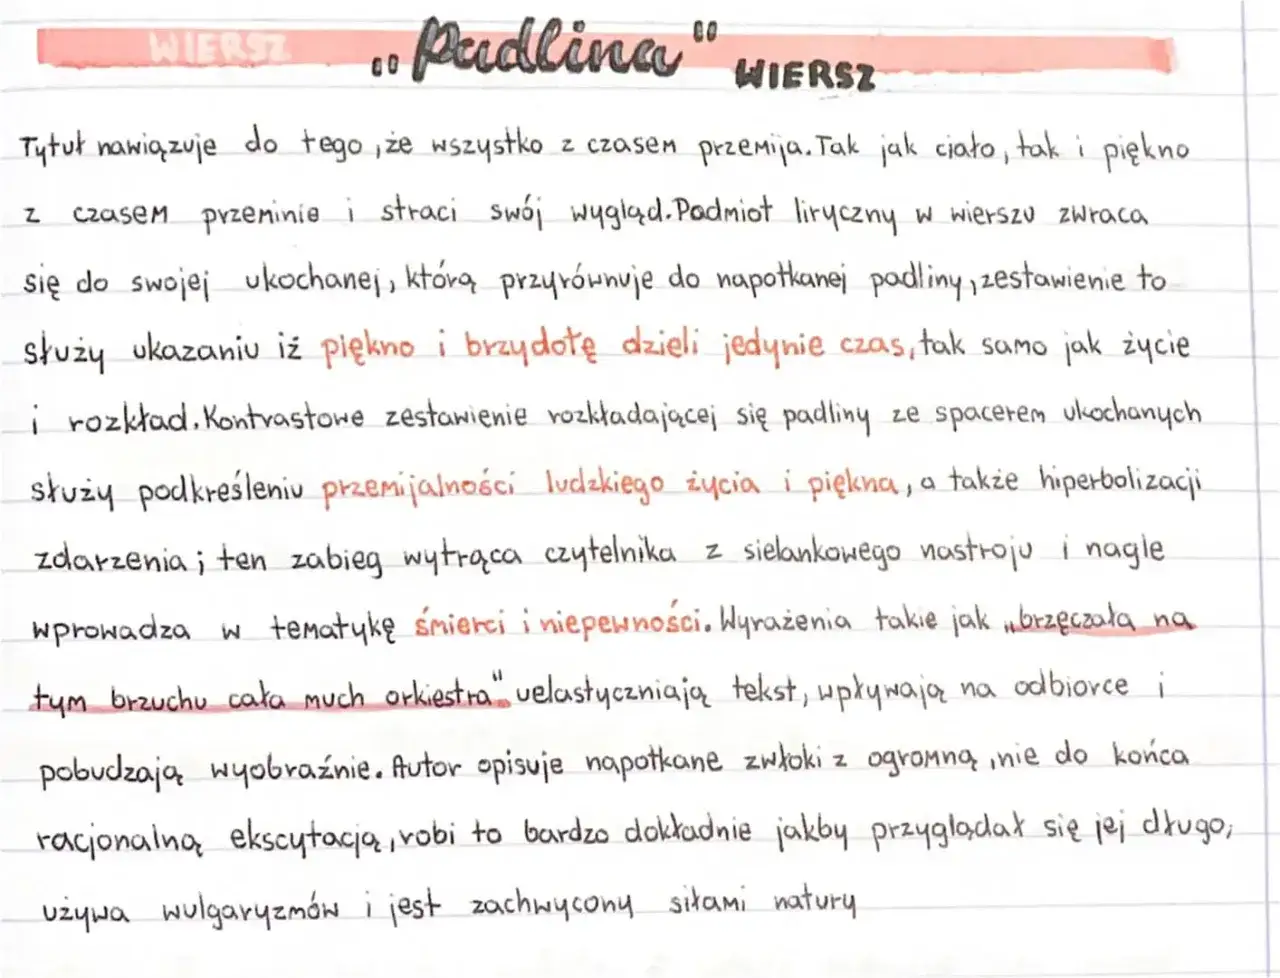 WIERSZ
„Padlina" WIERSZ
Tytuł nawiązuje do tego, że wszystko z czasem przemija. Tak jak ciało, tak i piękno
z czasem przeminie i straci swój wygląd. Podmiot liryczny w wierszu zwraca
się do swojej ukochanej, którą przyrównuje do napotkanej padliny, zestawienie to
służy ukazaniu iż piękno i brzydotę dzieli jedynie czas, tak samo jak życie
i rozkład. Kontrastowe zestawienie rozkładającej się padliny ze spacerem ukochanych
służy podkreśleniu przemijalności ludzkiego życia i piękna, a także hiperbolizacji
zdarzenia; ten zabieg wytrąca czytelnika z sielankowego nastroju i nagle
wprowadza w tematykę śmierci i niepewności. Wyrażenia takie jak „brzęczała na
tym brzuchu cała much orkiestra" uelastyczniają tekst, wpływają na odbiorce i
pobudzają wyobraźnie. Autor opisuje napotkane zwłoki z ogromną, nie do końca
racjonalną ekscytacją, robi to bardzo dokładnie jakby przyglądał się jej długo,
używa wulgaryzmów i jest zachwycony siłami natury